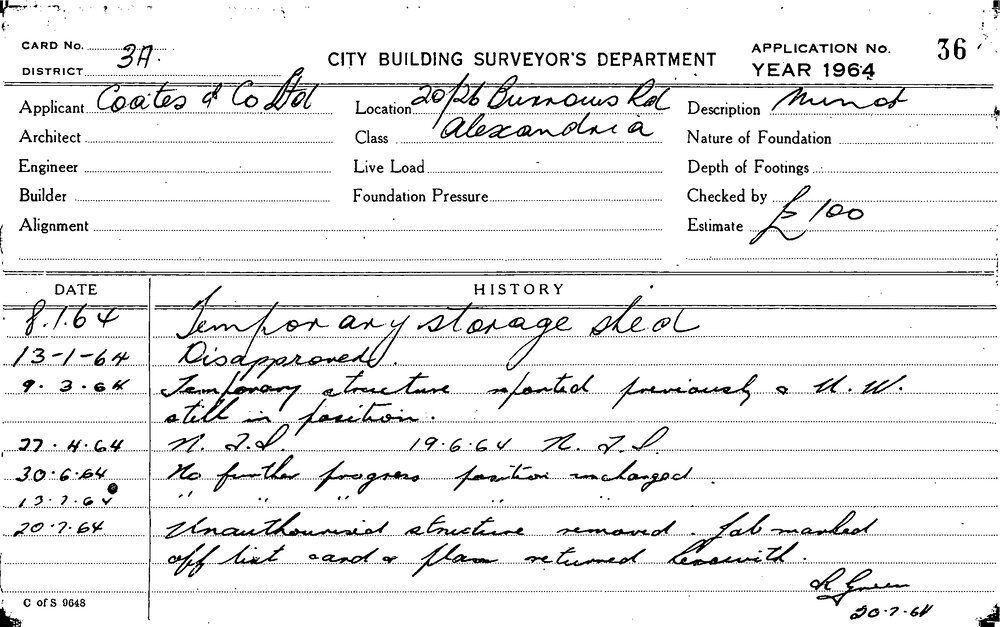 CARD No.
DISTRICT 3A.
CITY BUILDING SURVEYOR'S DEPARTMENT
APPLICATION No. 36
YEAR 1964
Applicant Coates & Co Ltd
Location 20/26 Burrows Rd
Description Minor
Architect
Class Alexandria
Nature of Foundation
Engineer
Live Load
Depth of Footings
Builder
Foundation Pressure
Checked by
Alignment
Estimate £ 100
DATE HISTORY
8.1.64 Temporary storage shed
13-1-64 Disapproved.
9.3.64 Temporary structure reported previously & U.W.
still in position.
27.4.64 N.F.S. 19.6.64 N.F.S.
30.6.64 No further progress position unchanged
13.7.64 " " " " "
20.7.64 Unauthourised structure removed. Job marked
off list card & plan returned herewith.
R Green
20-7-64
C of S 9648